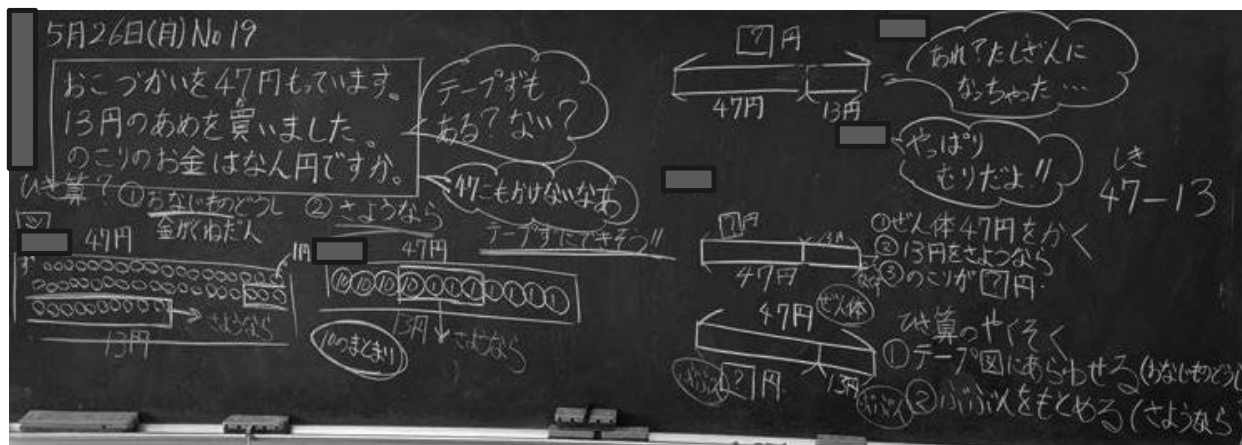 5月26日(月)No 19
おこづかいを47円もっています。
13円のあめを買いました。
のこりのお金はなん円ですか。
テープずも
ある?ない?
47こもかけないなあ
ひき算?
①おなじものどうし
金がくねだん
②さようなら
テープずにできそう!!
47円
1円
さようなら
13円
47円
⑩⑩⑩⑩①①①①①①①
13円
さようなら
10のまとまり
?円
47円
13円
あれ?たしざんに
なっちゃった…
やっぱり
むりだよ!!
しき
47-13
?円
13円
47円
①ぜん体47円をかく
②13円をさよなら
③のこりが?円
47円
ぜん体
ぶぶん
?円
13円
ぶぶん
ひき算のやくそく
①テープ図にあらわせる(おなじものどうし
②ぶぶんをもとめる(さようなら